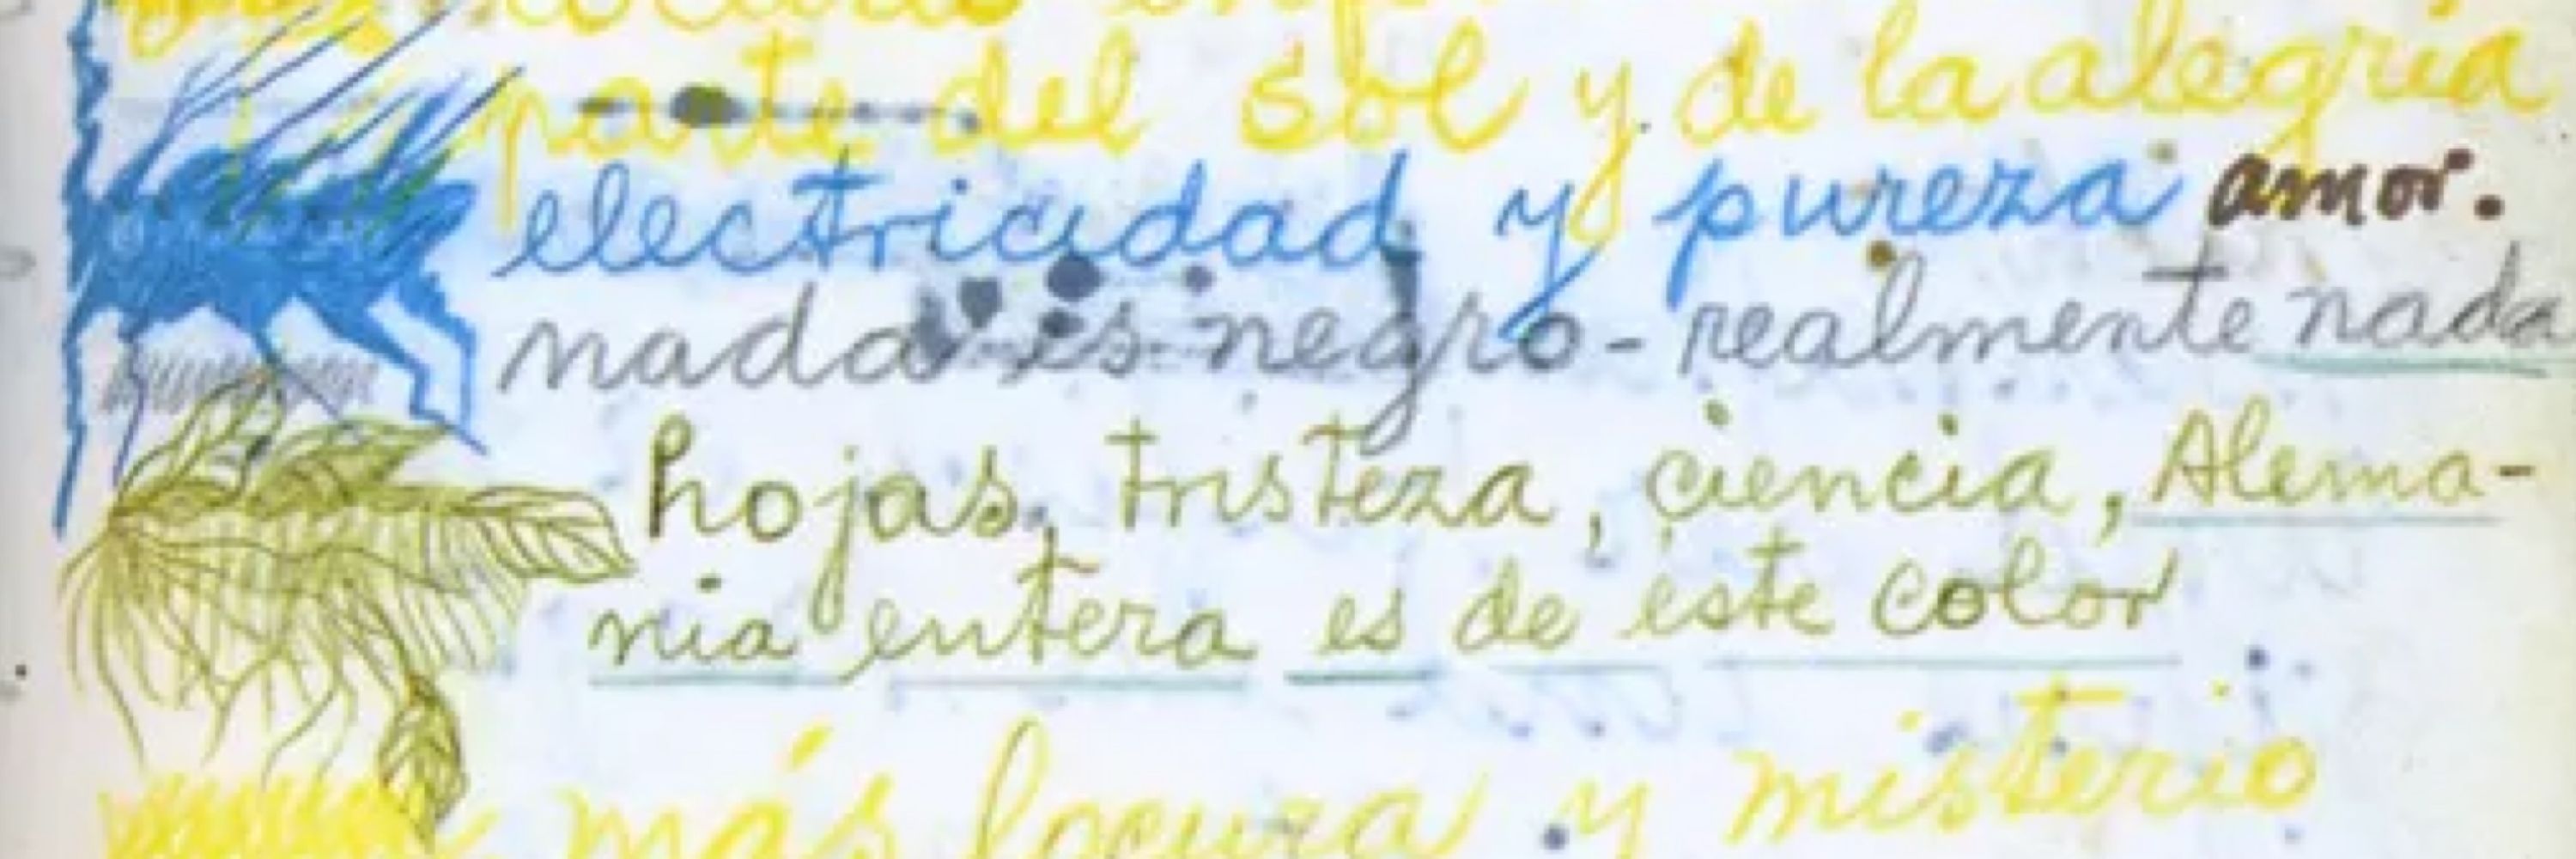 parte del sol y de la alegría
electricidad y pureza amor.
nada es negro - realmente nada
hojas, tristeza, ciencia, Alema-
nia entera es de este color
más locura y misterio